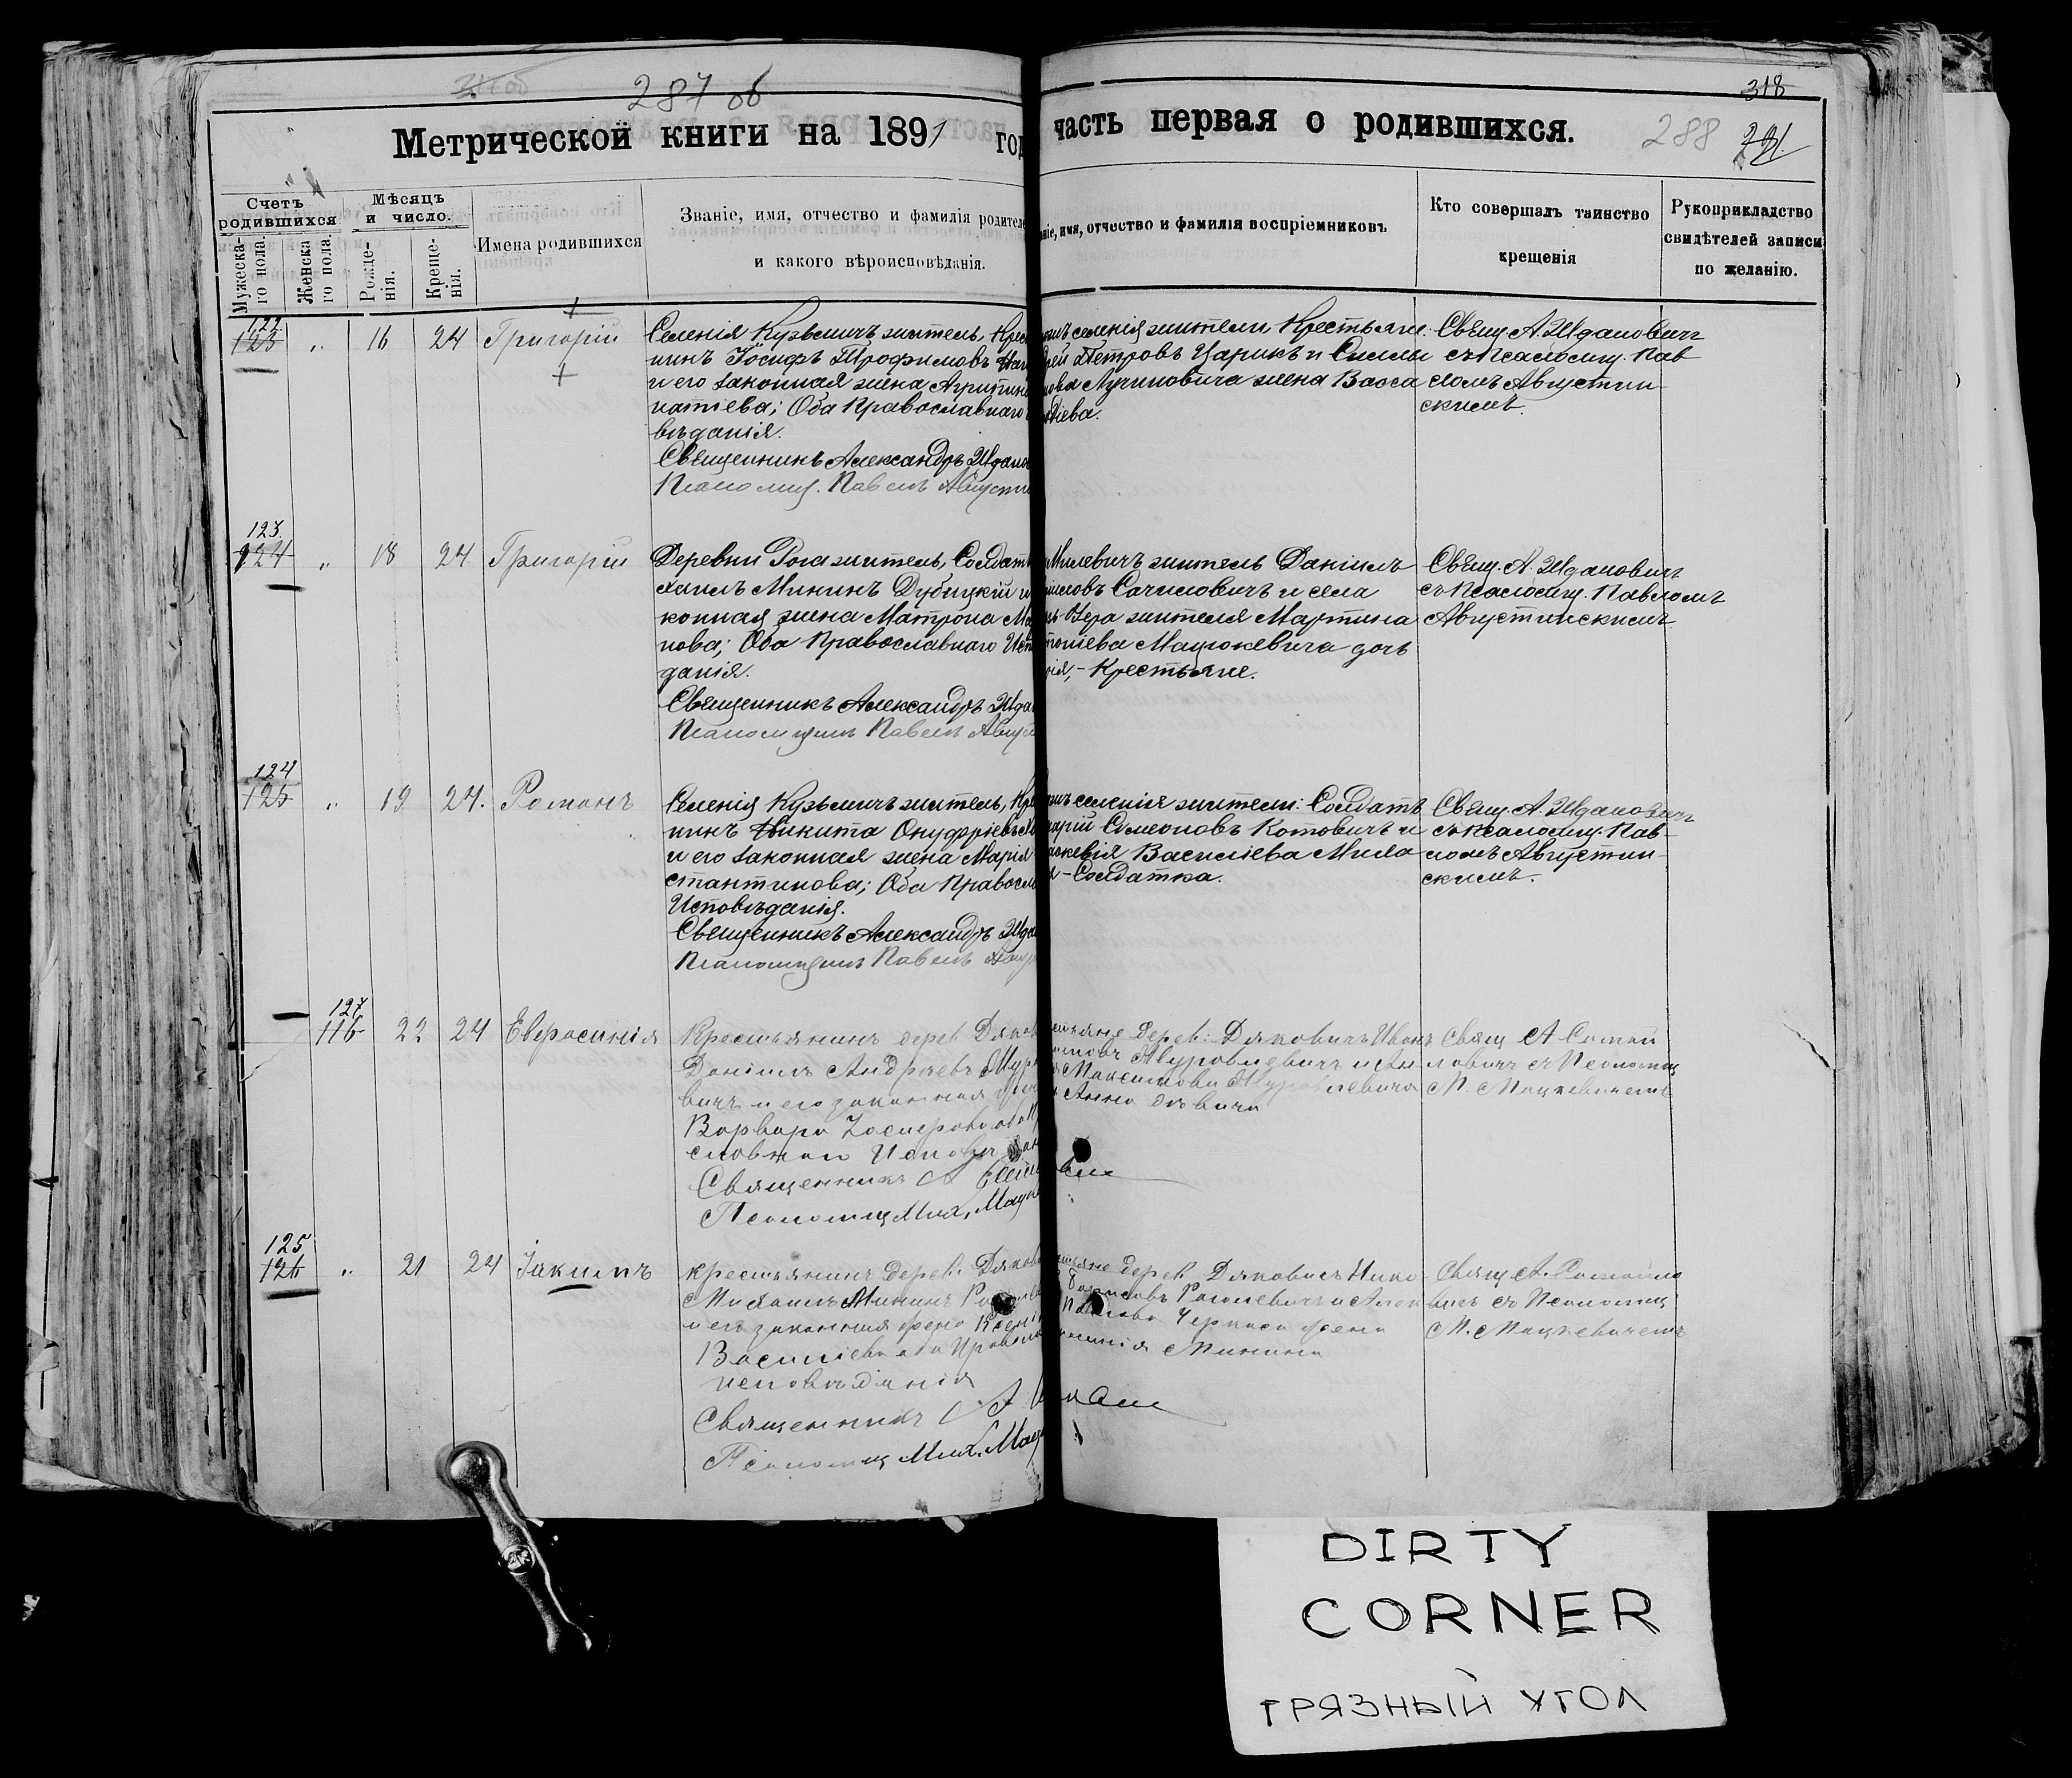 287 об
318
288
Метрической книги на 1891 год
часть первая о родившихся.
Счетъ родившихся
Мужеска-го пола.
Женска-го пола.
Мѣсяцъ и число.
Рожде-нія.
Креще-нія.
Имена родившихся
Званіе, имя, отчество и фамилія родителе
и какого вѣроисповѣданія.
ніе, имя, отчество и фамилія воспріемниковъ
Кто совершалъ таинство
крещенія
Рукоприкладство
свидѣтелей записи
по желанію.
122
123 " 16 24 Григорій
Селенія Кузьмичъ житель, Крес
нинъ Іосифъ Трофимовъ
и его законная жена Агрипин
натіева; Оба Православнаго
вѣданія.
Священникъ Александръ Ждано
Псаломщ. Павелъ Августи
селенія жители Крестьяне:
Петровъ Царикъ и
Лучиновича жена Васса
Свящ. А. Ждановичъ
съ Псаломщ. Пав
ломъ Августин
скимъ.
123
124 " 18 24 Григорій
Деревни житель, Солдат
хаилъ Мининъ Дубицкій и
конная жена Матрона Ма
нова; Оба Православнаго Исп
данія.
Священникъ Александръ Жда
Псаломщикъ Павелъ Авгус
Милевичъ житель Даніилъ
Сачиловичъ и села
жителя Мартина
Мацюкевича дочь
рія, - Крестьяне.
Свящ. А. Ждановичъ
съ Псаломщ. Павломъ
Августинскимъ.
124
125 " 19 24. Романъ
Селенія Кузьмичъ житель, Кре
нинъ Никита Онуфріевъ
и его законная жена Марія
стантинова; Оба Правосла
Исповѣданія.
Священникъ Александръ Жда
Псаломщикъ Павелъ Авгу
селенія жители: Солдатъ
карій Симеоновъ Котовичъ и
Васильева Мила
- Солдатка.
Свящ. А. Ждановичъ
съ Псаломщ. Пав-
ломъ Августин-
скимъ.
127
116 22 24 Евфросинія
Крестьянинъ дерев Дяков
Даніилъ Андреевъ Мур
вичъ и его законная жен
Варвара Іосифова оба П
славнаго Исповѣдан
Священникъ А
Псаломщ Мих. Мацк
стьяне дерев: Дяковичъ Иванъ
Муровлевичъ и Ан
Максимова Муровлевича
Анна дѣвица
Свящ А
ловичъ съ Псаломщ
М. Мацкевичемъ
125
126 " 21 24 Іакимъ
крестьянинъ дерев: Дяков
Михаилъ Мининъ
и его законная жена Ксені
Васильева оба Правосла
исповѣданія
Священникъ А
Псаломщ Мих. Мац
стьяне дерев Дяковичъ Нико
Борисовъ и Алек
Павлова жена
Минина
Свящ А.
вичъ съ Псаломщ
М. Мацкевичемъ
DIRTY
CORNER
ГРЯЗНЫЙ УГОЛ